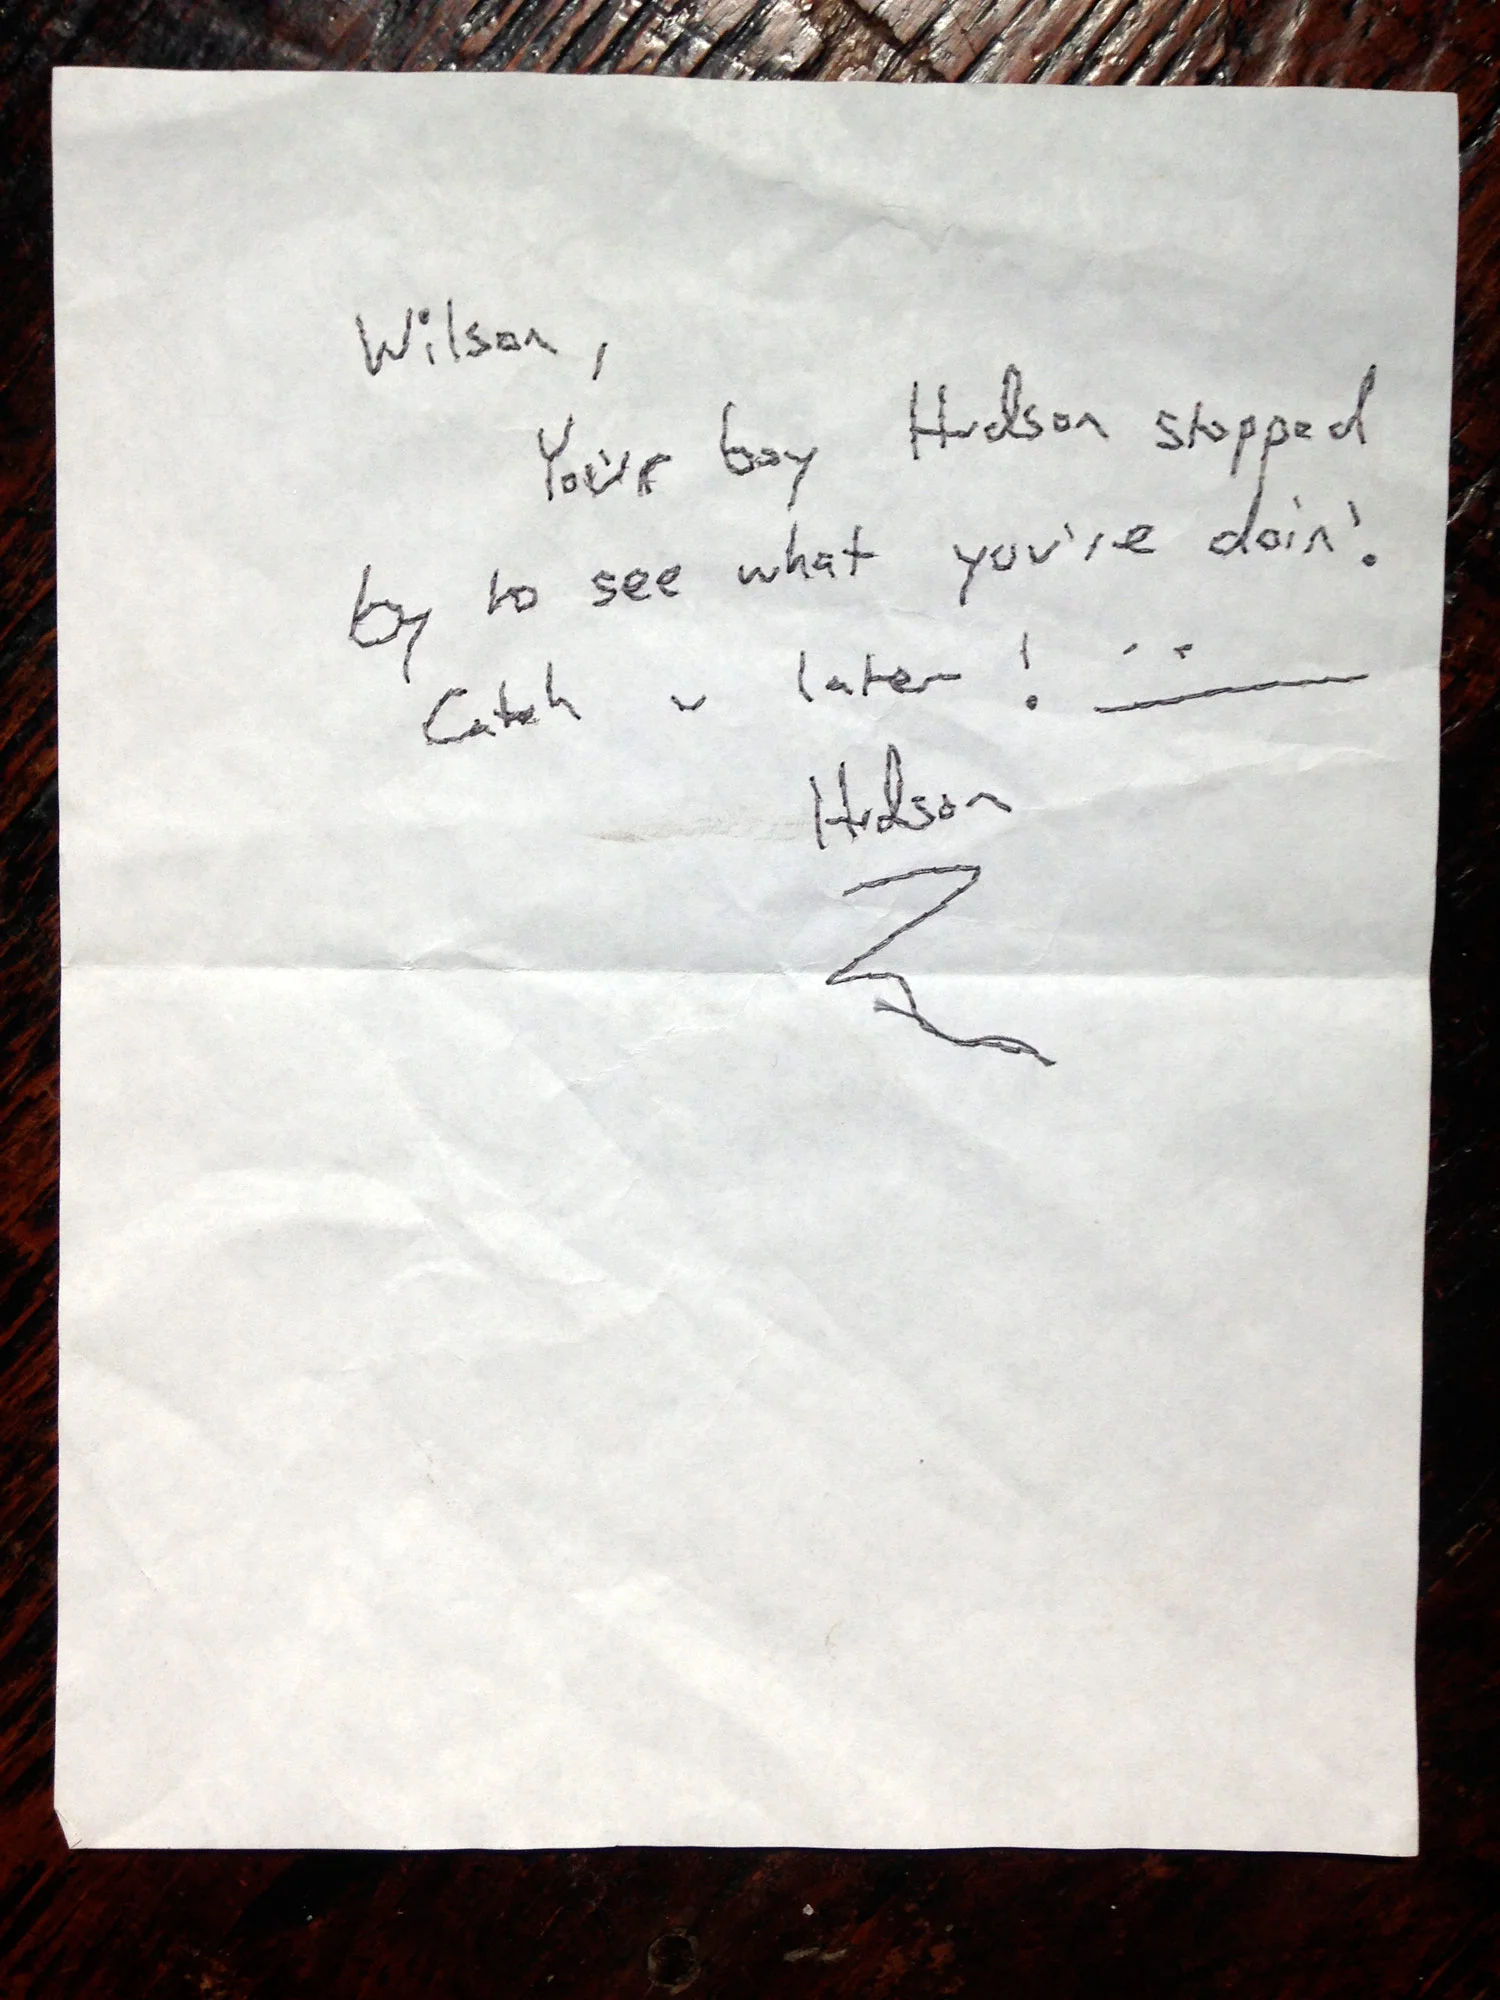 Wilson,
Your boy Hudson stopped
by to see what you're doin'.
Catch u later!
Hudson